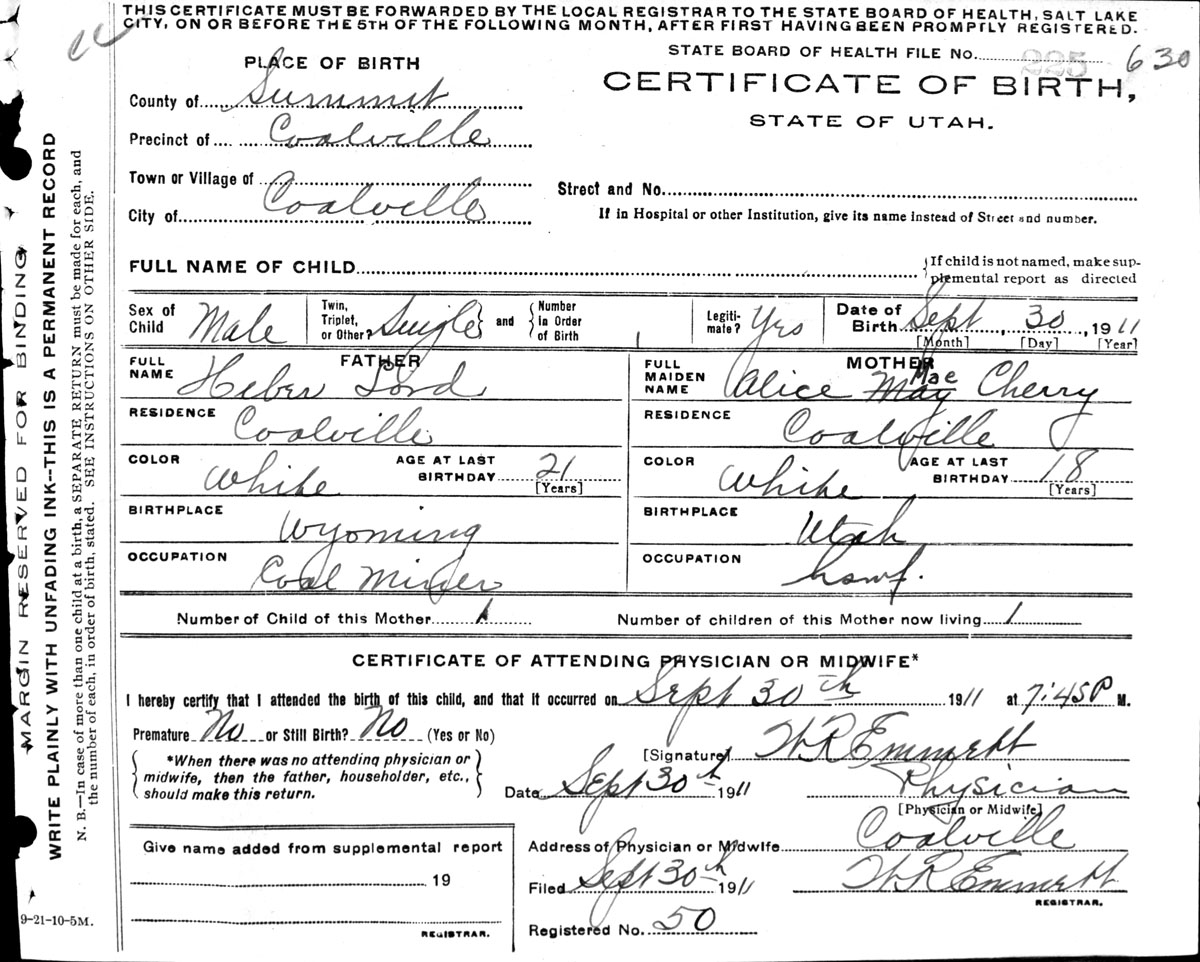 THIS CERTIFICATE MUST BE FORWARDED BY THE LOCAL REGISTRAR TO THE STATE BOARD OF HEALTH, SALT LAKE
CITY, ON OR BEFORE THE 5TH OF THE FOLLOWING MONTH, AFTER FIRST HAVING BEEN PROMPTLY REGISTERED.
STATE BOARD OF HEALTH FILE No. 225 630
PLACE OF BIRTH
CERTIFICATE OF BIRTH,
STATE OF UTAH.
County of Summit
Precinct of Coalville
Town or Village of
City of Coalville
Street and No.
If in Hospital or other Institution, give its name instead of Street and number.
FULL NAME OF CHILD
{If child is not named, make sup-
plemental report as directed
Sex of Child Male
Twin, Triplet, or Other? Single } and { Number in Order of Birth
Legiti-mate? Yes
Date of Birth Sept, 30, 1911
[Month] [Day] [Year]
FATHER
FULL NAME Heber Lord
RESIDENCE Coalville
COLOR White AGE AT LAST BIRTHDAY 21
[Years]
BIRTHPLACE Wyoming
OCCUPATION Coal Miner
MOTHER
FULL MAIDEN NAME Alice May Mae Cherry
RESIDENCE Coalville
COLOR White AGE AT LAST BIRTHDAY 18
[Years]
BIRTHPLACE Utah
OCCUPATION hswf.
Number of Child of this Mother 1 Number of children of this Mother now living 1
CERTIFICATE OF ATTENDING PHYSICIAN OR MIDWIFE*
I hereby certify that I attended the birth of this child, and that it occurred on Sept 30th 1911 at 7:45 P M.
Premature No or Still Birth? No (Yes or No)
{ *When there was no attending physician or
midwife, then the father, householder, etc.,
should make this return. }
[Signature] W R Emmett
Date Sept 30th 1911 Physician
[Physician or Midwife]
Address of Physician or Midwife Coalville
Filed Sept 30th 1911 W R Emmett
REGISTRAR.
Registered No. 50
Give name added from supplemental report
19
REGISTRAR.
9-21-10-5M.
MARGIN RESERVED FOR BINDING
WRITE PLAINLY WITH UNFADING INK--THIS IS A PERMANENT RECORD
N. B.—In case of more than one child at a birth, a SEPARATE RETURN must be made for each, and
the number of each, in order of birth, stated. SEE INSTRUCTIONS ON OTHER SIDE.